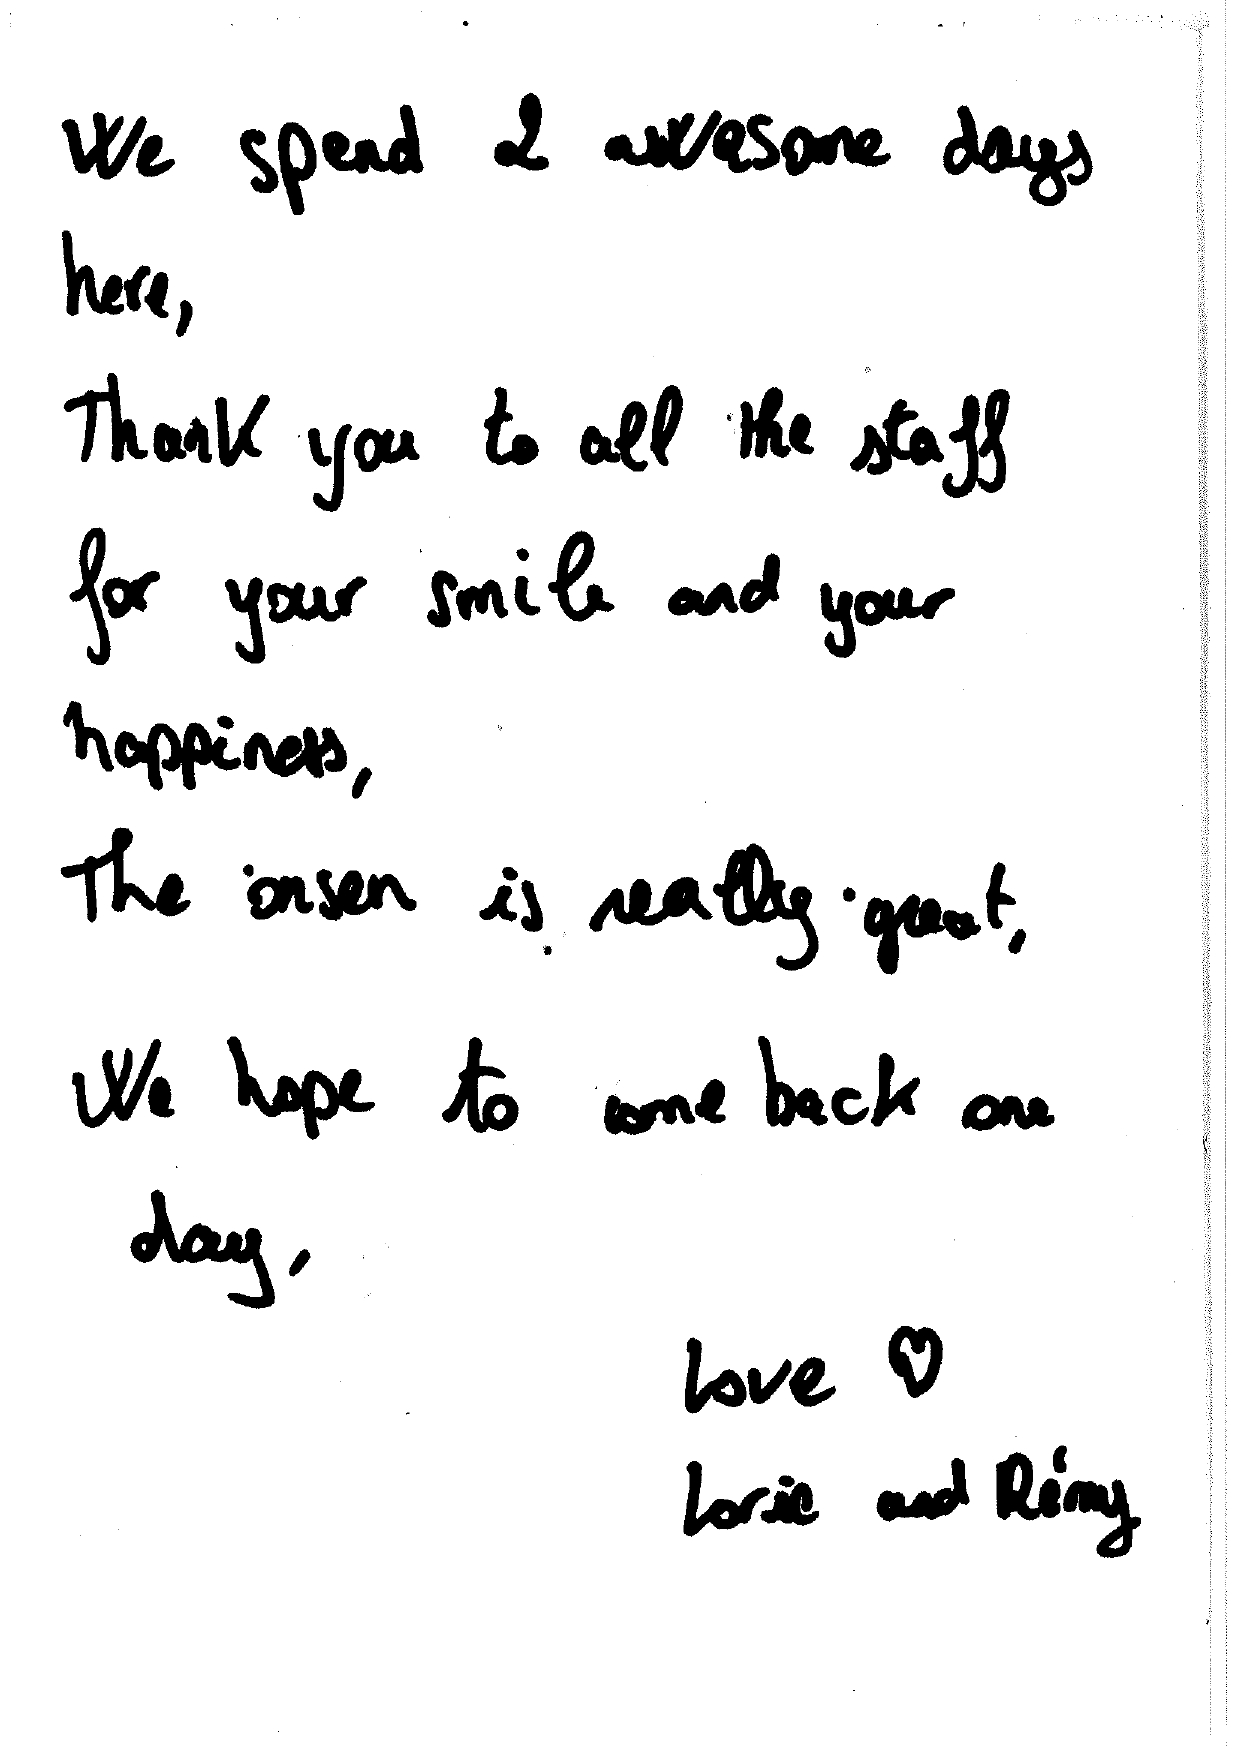 We spend 2 awesome days
here,
Thank you to all the staff
for your smile and your
happiness,
The onsen is really great,
We hope to come back one
day,
Love ♡
Lorie and Rémy